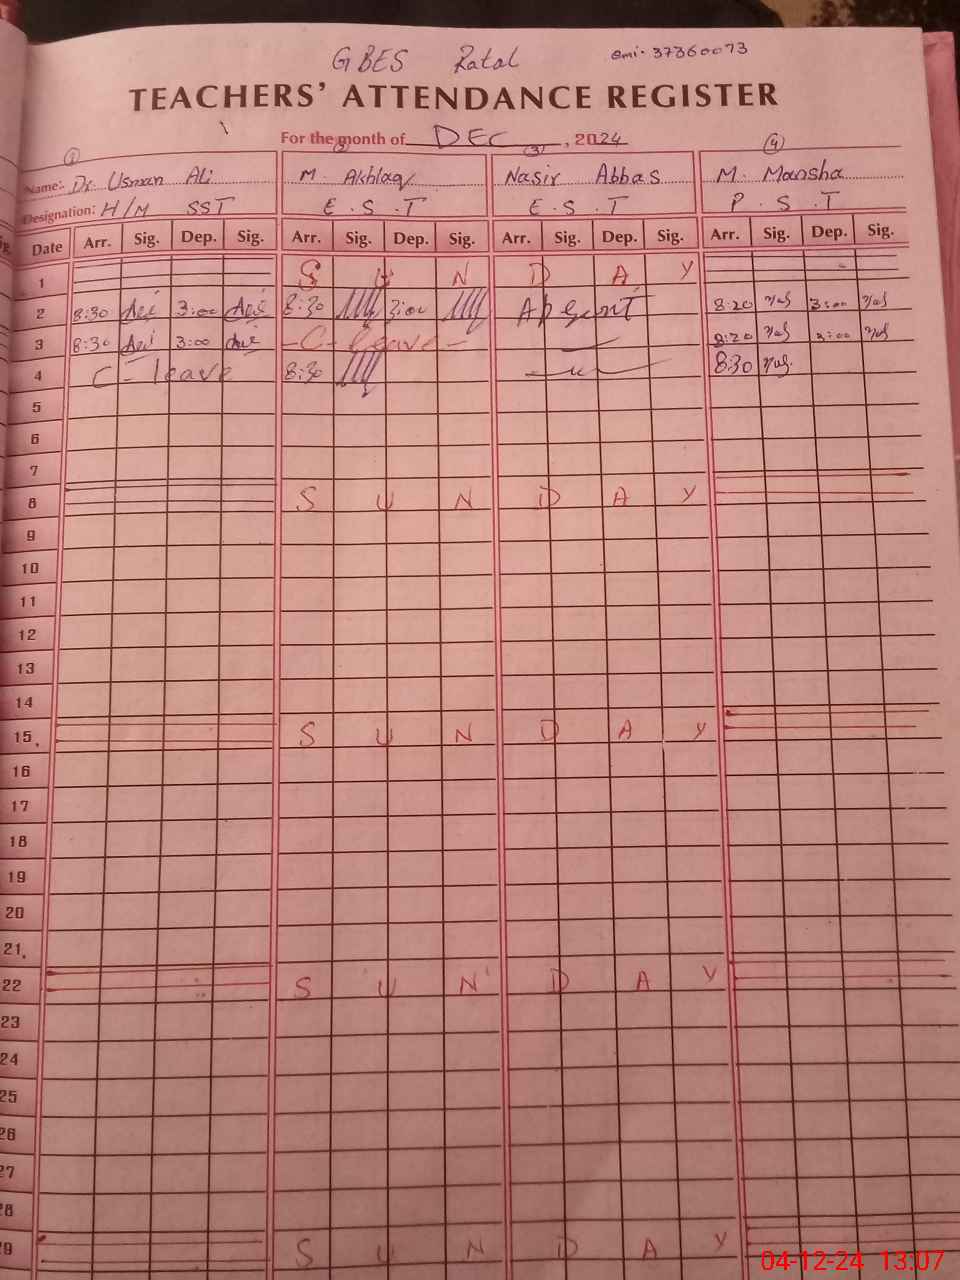 GBES Ratal emi- 37360073
TEACHERS' ATTENDANCE REGISTER
For the month of DEC, 2024
① ② ③ ④
Name:- Dr. Usman Ali M. Akhlaq Nasir Abbas M. Mansha
Designation: H/M SST E.S.T E.S.T P.S.T
Date Arr. Sig. Dep. Sig. Arr. Sig. Dep. Sig. Arr. Sig. Dep. Sig. Arr. Sig. Dep. Sig.
1 S U N D A Y
2 8:30 3:00 8:30 3:00 Absent 8:20 3:00
3 8:30 3:00 -C- leave- 8:20 3:00
4 C-leave 8:30 8:30
5
6
7
8 S U N D A Y
9
10
11
12
13
14
15 S U N D A Y
16
17
18
19
20
21
22 S U N D A Y
23
24
25
26
27
28
29 S U N D A Y
04-12-24 13:07